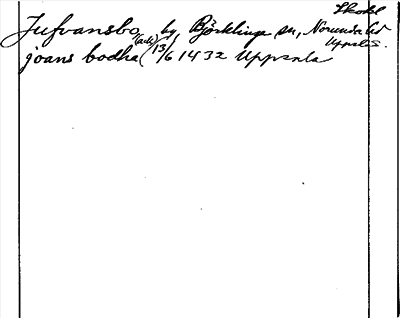 Skokl
Jufvansbo, by, Björklinge sn, Norunda hd
Uppsala.
joans bodha (ack) 13/6 1432 Uppsala